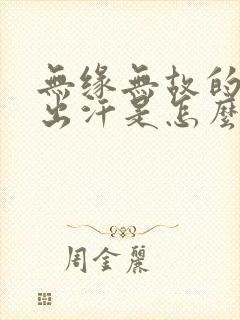 無緣無故的
出汗是怎麼
周金麗